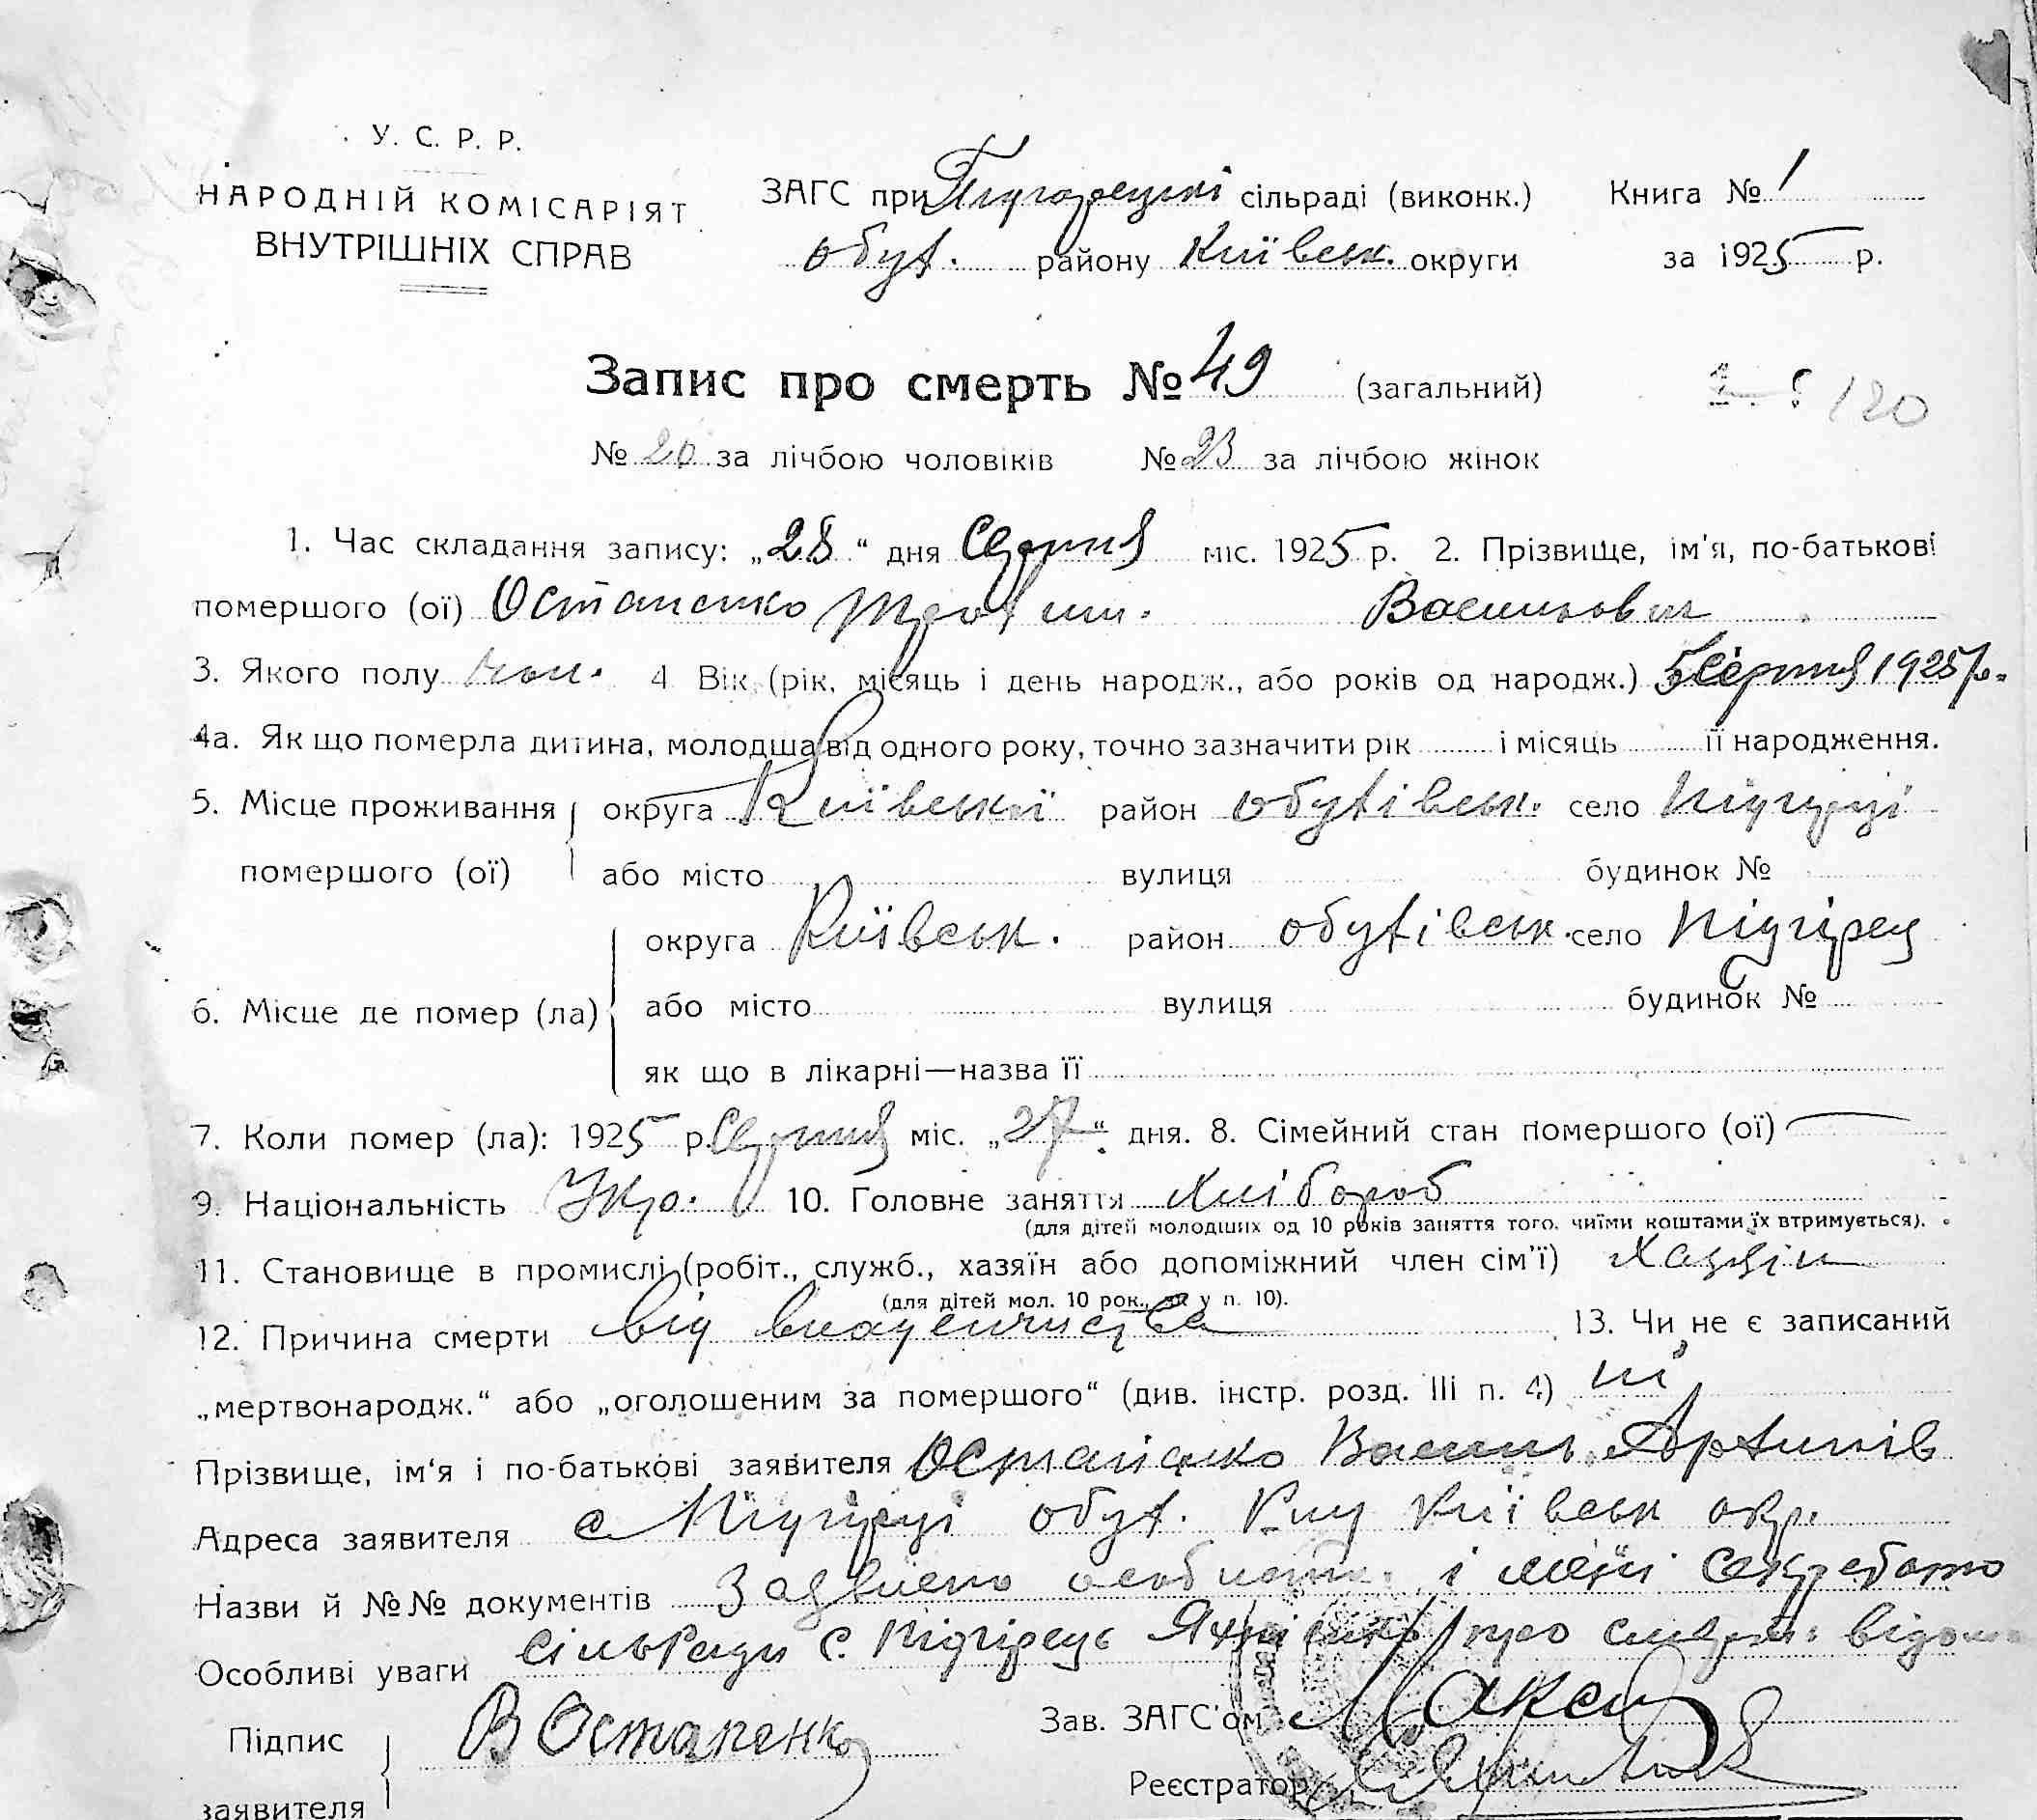 У. С. Р. Р.
НАРОДНІЙ КОМІСАРІЯТ
ВНУТРІШНІХ СПРАВ
ЗАГС при сільраді (виконк.)
Книга № 1
обух. району Київськ. округи
за 1925 р.
Запис про смерть № 49 (загальний)
120
№ 20 за лічбою чоловіків № 23 за лічбою жінок
1. Час складання запису: „28“ дня Серпня міс. 1925 р. 2. Прізвище, ім'я, по-батькові
помершого (ої) Остапенко Василович
3. Якого полу чол. 4 Вік (рік, місяць і день народж., або років од народж.) 5 Серпня 1925 р.
4а. Як що померла дитина, молодша від одного року, точно зазначити рік і місяць її народження.
5. Місце проживання округа Київській район обухівськ. село Підгірці
помершого (ої) або місто вулиця будинок №
округа Київськ. район обухівськ. село Підгірец
6. Місце де помер (ла) або місто вулиця будинок №
як що в лікарні—назва її
7. Коли помер (ла): 1925 р. Серпня міс. „27“ дня. 8. Сімейний стан помершого (ої) —
9. Національність Укр. 10. Головне заняття Хлібороб
(для дітей молодших од 10 років заняття того, чиїми коштами їх втримується).
11. Становище в промислі (робіт., служб., хазяїн або допоміжний член сім'ї) Хазяїн
(для дітей мол. 10 рок., як у п. 10).
12. Причина смерти від 13. Чи не є записаний
„мертвонародж.“ або „оголошеним за помершого“ (див. інстр. розд. III п. 4) ні
Прізвище, ім'я і по-батькові заявителя Остапенко Василь
Адреса заявителя с Підгірці обух. Київськ окр.
Назви й №№ документів Заявлено особисто і мені
Особливі уваги сільради с. Підгірець про смерть
Підпис
заявителя
В Остапенко
Зав. ЗАГС'ом
Реєстратор